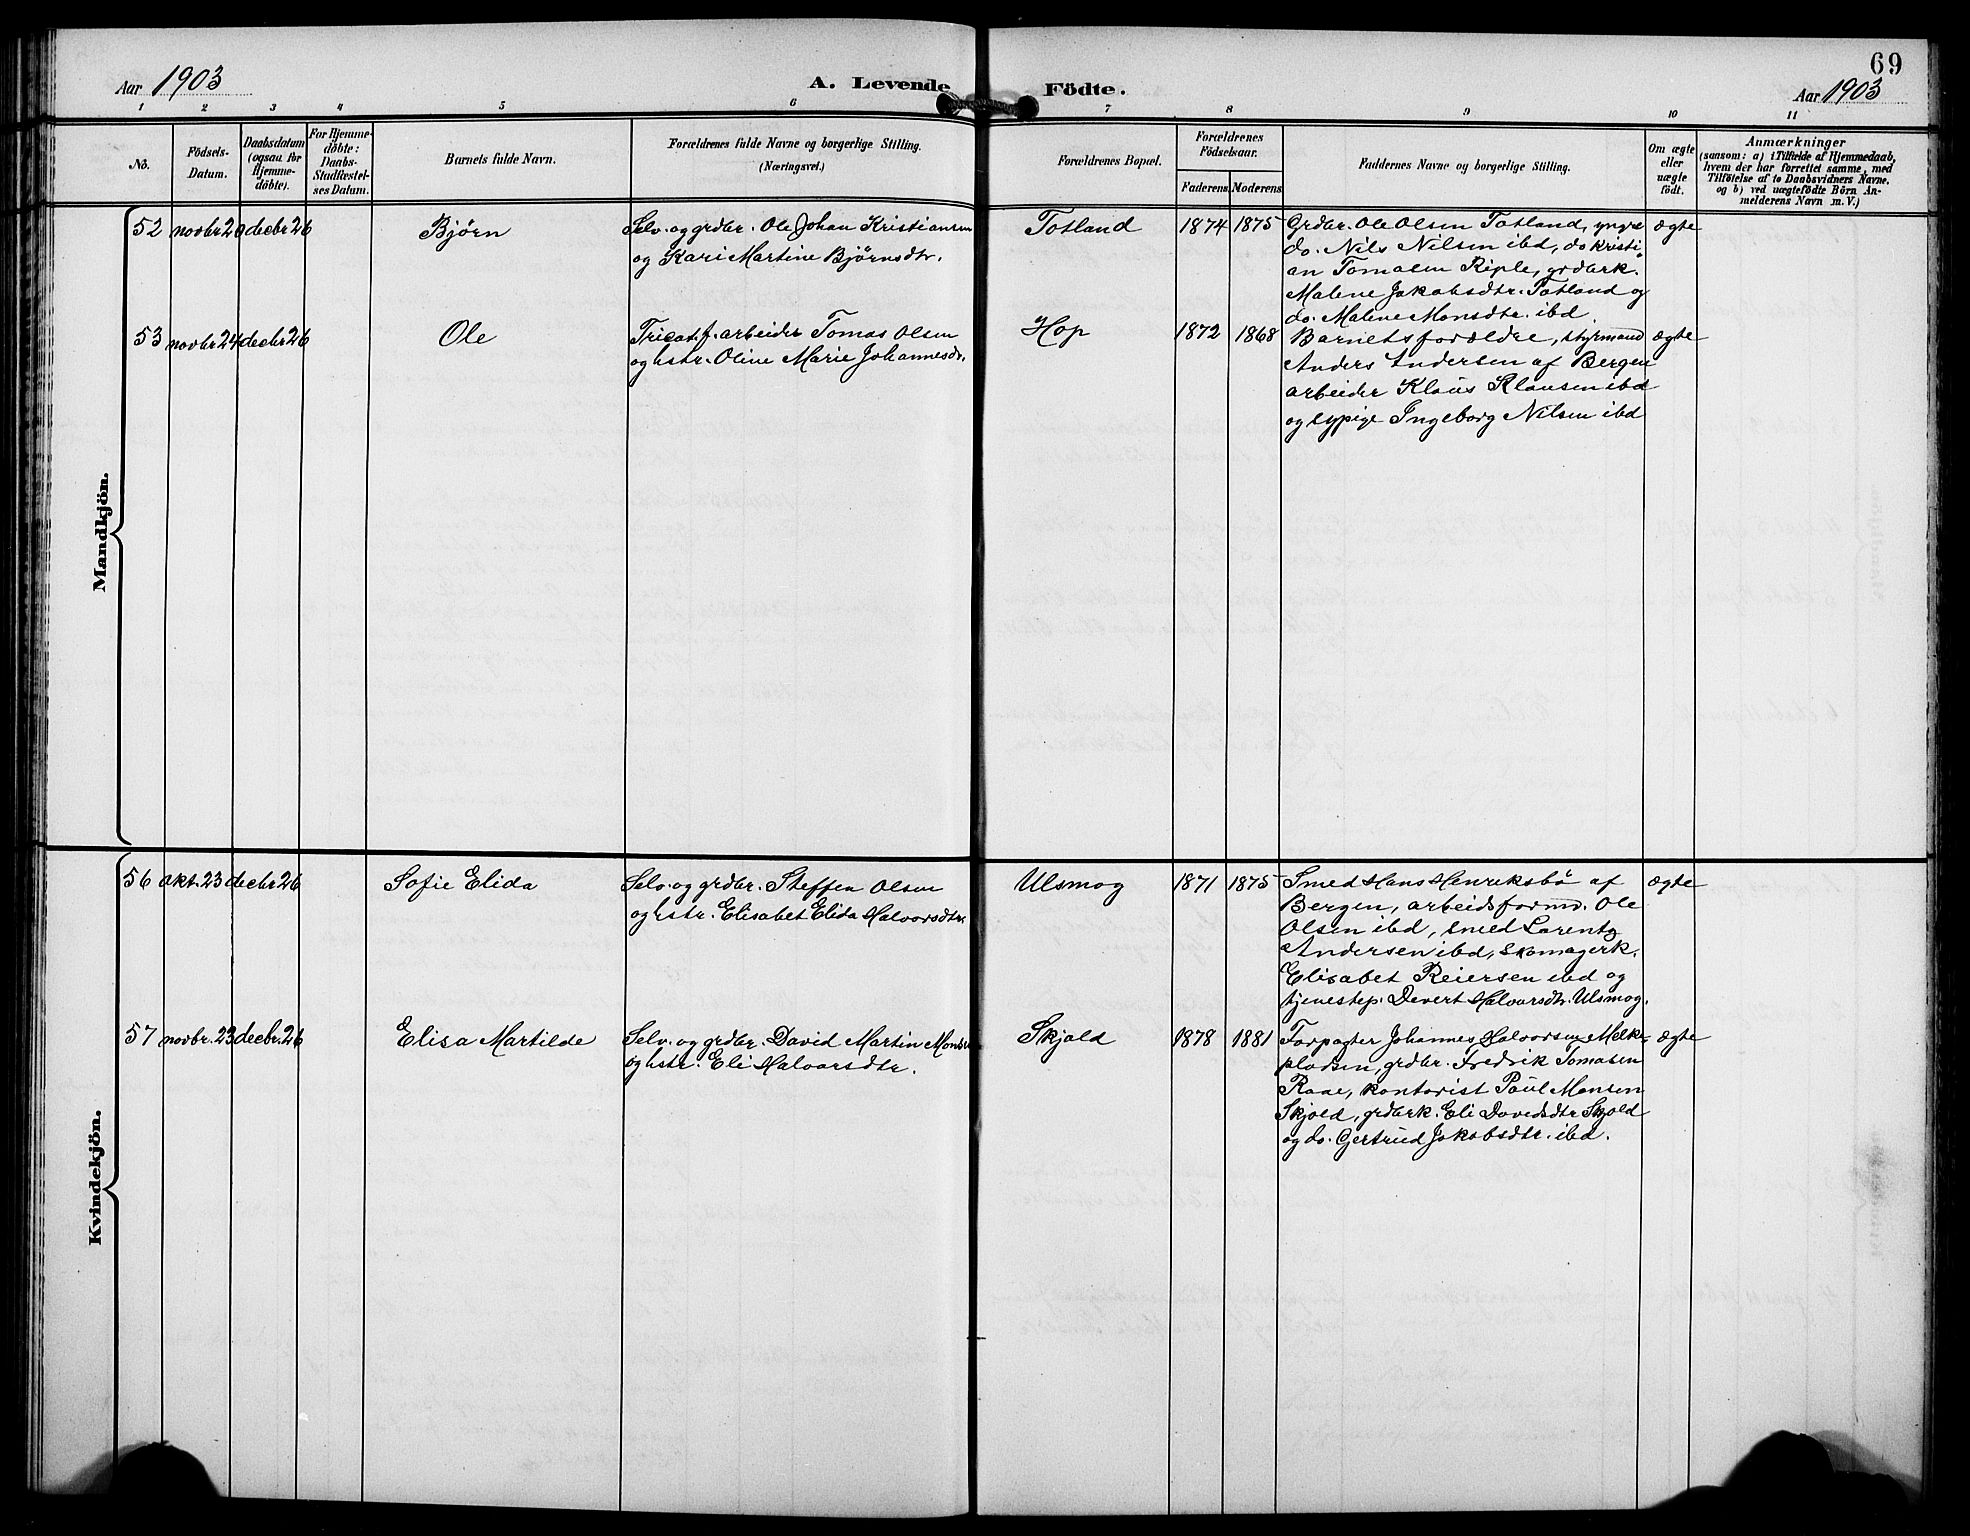 69
Aar 1903
A. Levende Födte.
Aar 1903
1 2 3 4 5 6 7 8 9 10 11
Nö.
Födsels-
Datum.
Daabsdatum
(ogsaa for
Hjemme-
döbte).
For Hjemme-
döbte:
Daabs-
Stadfæstel-
ses Datum.
Barnets fulde Navn.
Forældrenes fulde Navne og borgerlige Stilling.
(Næringsvei.)
Forældrenes Bopæl.
Forældrenes
Födselsaar.
Faderens. Moderens.
Faddernes Navne og borgerlige Stilling.
Om ægte
eller
uægte
födt.
Anmærkninger
(saasom: a) i Tilfælde af Hjemmedaab,
hvem der har forrettet samme, med
Tilföielse af to Daabsvidners Navne,
og b) ved uægtefödte Börn An-
melderens Navn m. V.)
Mandkjön.
52 novbr 20 decbr 26 Bjørn
Selv. og grdbr. Ole Johan Kristiansen
og Kari Martine Bjørnsdtr.
Totland 1874 1875
Grdbr. Ole Olsen Totland, yngre
do. Nils Nilsen ibd, do Kristi-
an Tomasen Riple, grdbrk.
Malene Jakobsdtr. Totland og
do. Malene Monsdtr. ibd.
ægte
53 novbr 24 decbr 26 Ole
Tricot.f. arbeider Tomas Olsen
og hstr. Oline Marie Johannesdr.
Hop 1872 1868
Barnets forældre, styrmand
Anders Andersen af Bergen
arbeider Klaus Klausen ibd
og sypige Ingeborg Nilsen ibd
ægte
Kvindekjön.
56 okt. 23 decbr 26 Sofie Elida
Selv. og grdbr. Steffen Olsen
og hstr. Elisabet Elida Halvorsdtr.
Ulsmog 1871 1875
Smed Hans Henriksbö af
Bergen, arbeidsformd. Ole
Olsen ibd, smed Larentz
Andersen ibd, skomagerk.
Elisabet Reiersen ibd og
tjenestep. Devert Halvorsdtr. Ulsmog.
ægte
57 novbr. 23 decbr. 26 Elisa Martilde
Selv. og grdbr. David Martin Monsen
og hstr. Eli Halvorsdtr.
Skjold 1878 1881
Forpagter Johannes Halvorsen Melke-
pladsen, grdbr. Fredrik Tomasen
Raae, kontorist Paul Monsen
Skjold, grdbrk. Eli Davidsdtr Skjold
og do. Gertrud Jakobsdtr. ibd.
ægte